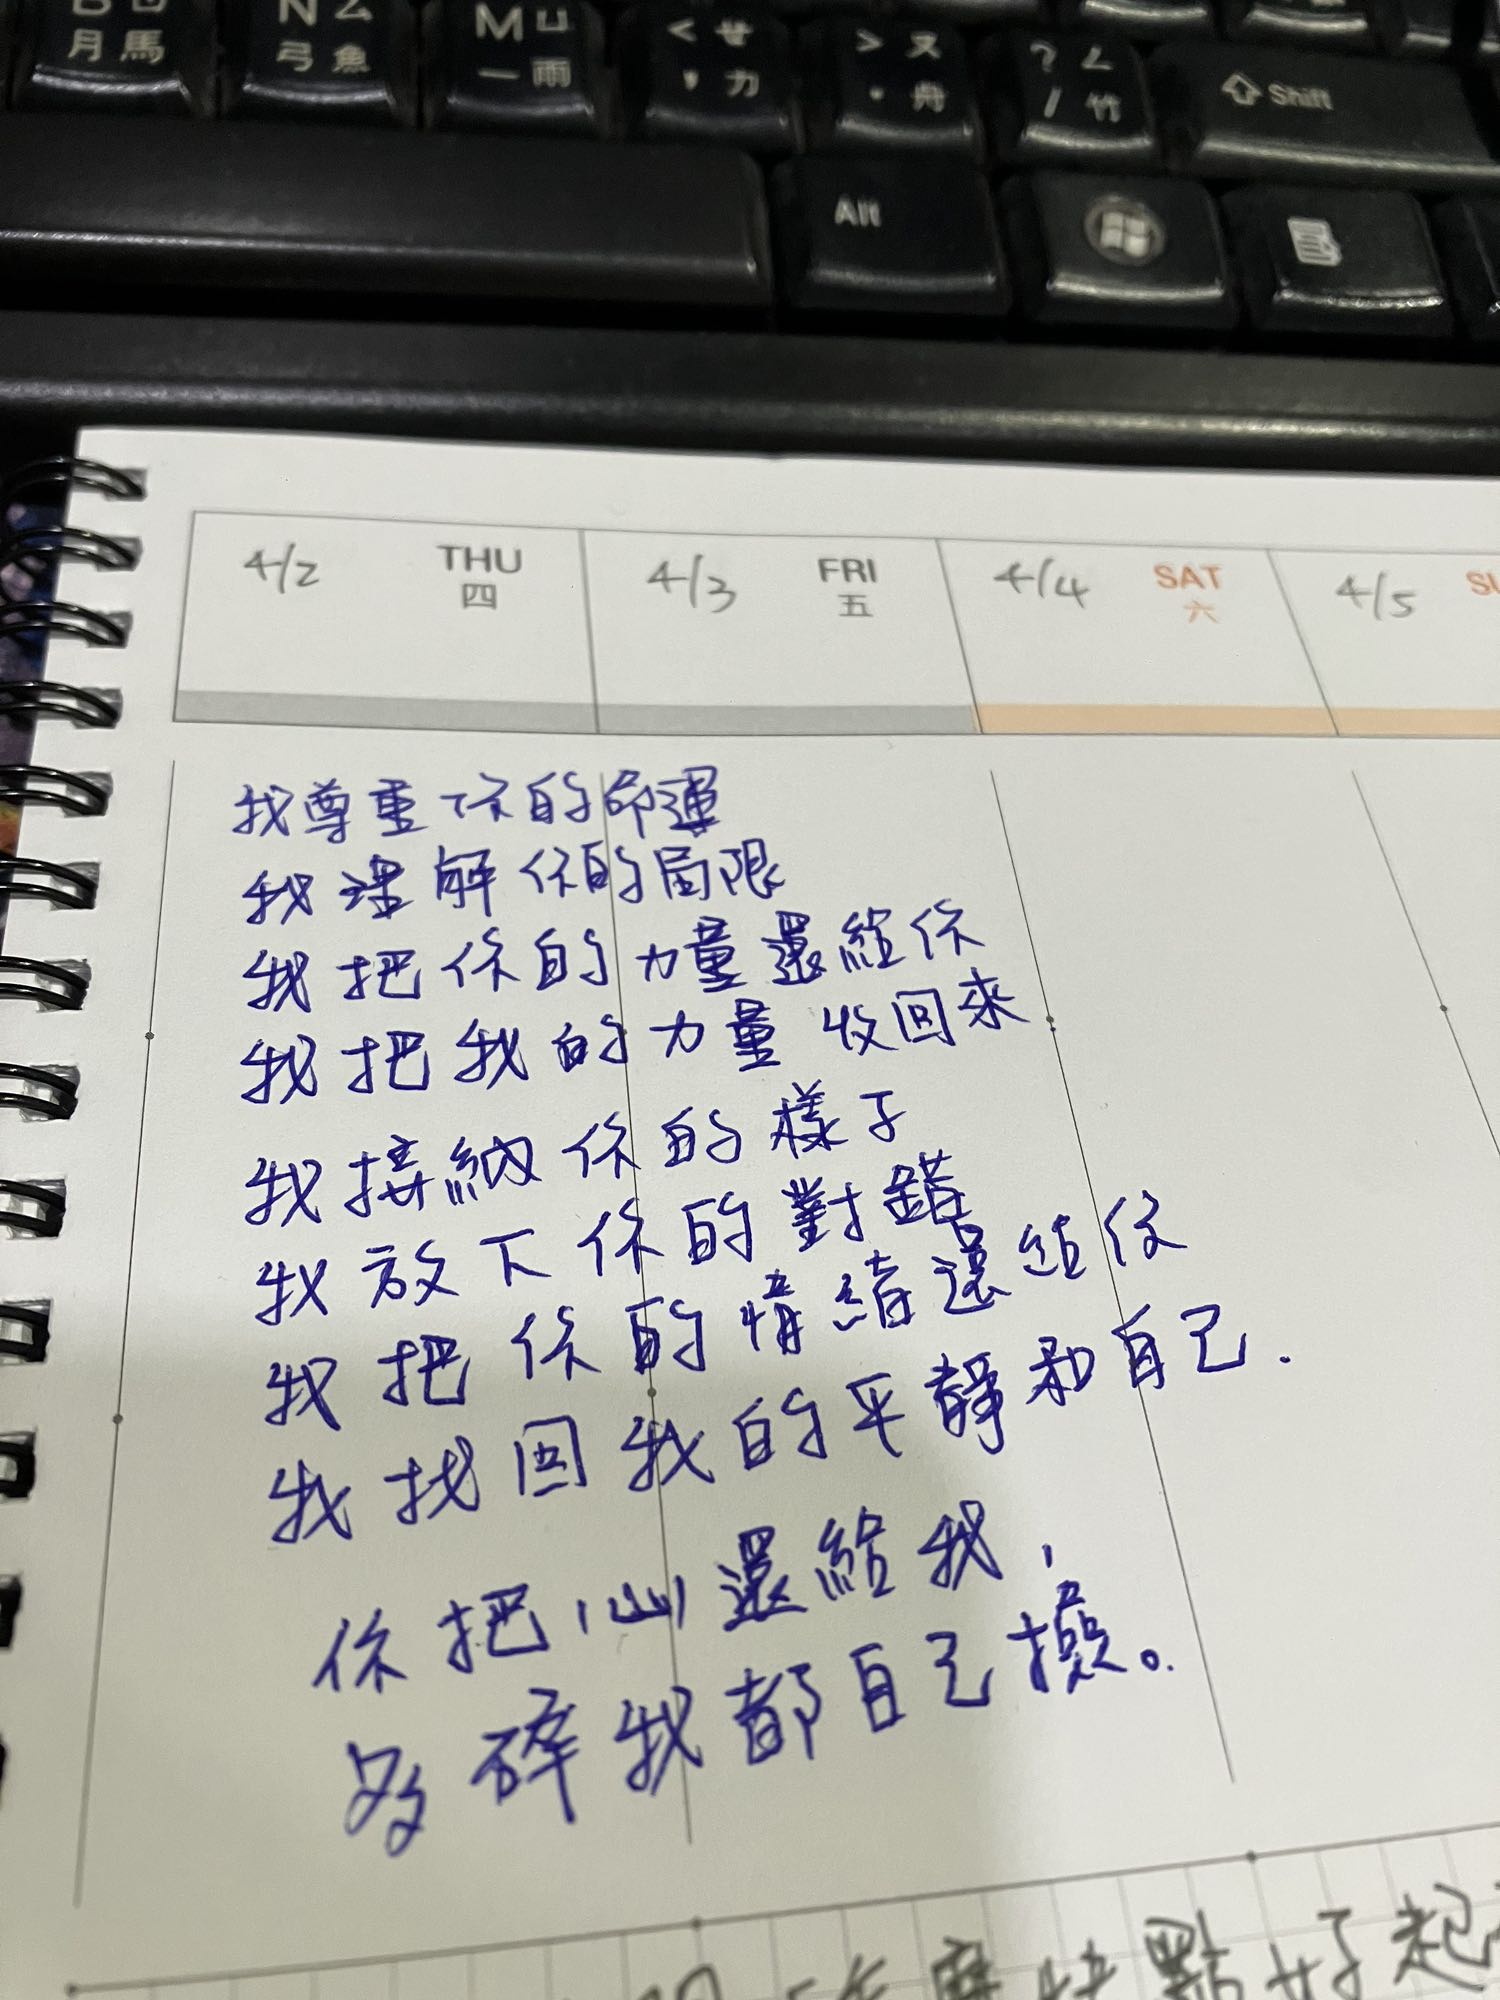 B ㄖ N ㄙ M ㄩ < ㄝ > ㄡ ? ㄥ Shift
月 馬 弓 魚 一 雨 , 力 . 舟 / 竹
Alt
4/2 THU 4/3 FRI 4/4 SAT 4/5
四 五 六
我尊重你的命運
我理解你的局限
我把你的力量還給你
我把我的力量收回來
我接納你的樣子
我放下你的對錯
我把你的情緒還給你
我找回我的平靜和自己.
你把心還給我,
多碎我都自己撿。
點好起